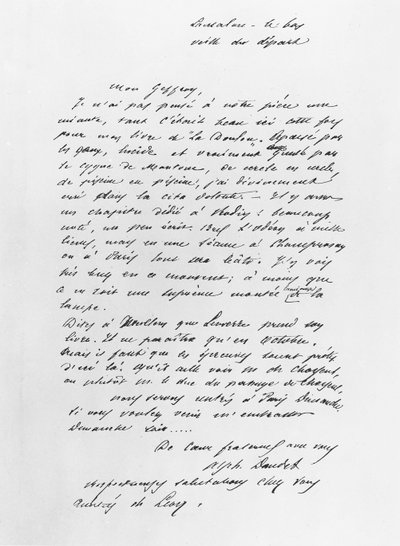 Lamalou - le bas
veille du départ
Mon Geffroy,
Je n'ai pas pensé à notre pièce une
minute, tant c'était beau ici cette fois
pour mon livre de "La Doulou".
les lucide et vraiment par
le cygne de Mantoue, de cercle en cercle,
de piscine en piscine, j'ai divinement
erré dans la cita dolente. - Il y aura
un chapitre dédié à Rodin! beaucoup
noté, un peu écrit. Bref l'Odéon à mille
lieues, mais en une séance à Champrosay
ou à Paris tout ira. J'y vois
très en ce moment; à moins que
ce ne soit une suprême montée de la
lampe.
Dites à que Lemerre prend son
livre. Il ne paraîtra qu'en octobre.
Mais il faut que les épreuves soient prêtes
d'ici là. Qu'il aille voir M. de
ou plutôt M. le duc du passage de Choiseul.
nous serons rentrés à Paris Dimanche,
si vous voulez venir m'embrasser
Dimanche soir.....
De cœur fraternel avec vous
Alph. Daudet
respectueuses salutations chez vous
amitiés de Léon.